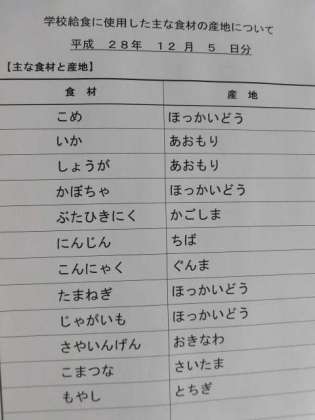 学校給食に使用した主な食材の産地について
平成　２８年　１２　月　５　日分
【主な食材と産地】
食　材　産　地
こめ　ほっかいどう
いか　あおもり
しょうが　あおもり
かぼちゃ　ほっかいどう
ぶたひきにく　かごしま
にんじん　ちば
こんにゃく　ぐんま
たまねぎ　ほっかいどう
じゃがいも　ほっかいどう
さやいんげん　おきなわ
こまつな　さいたま
もやし　とちぎ